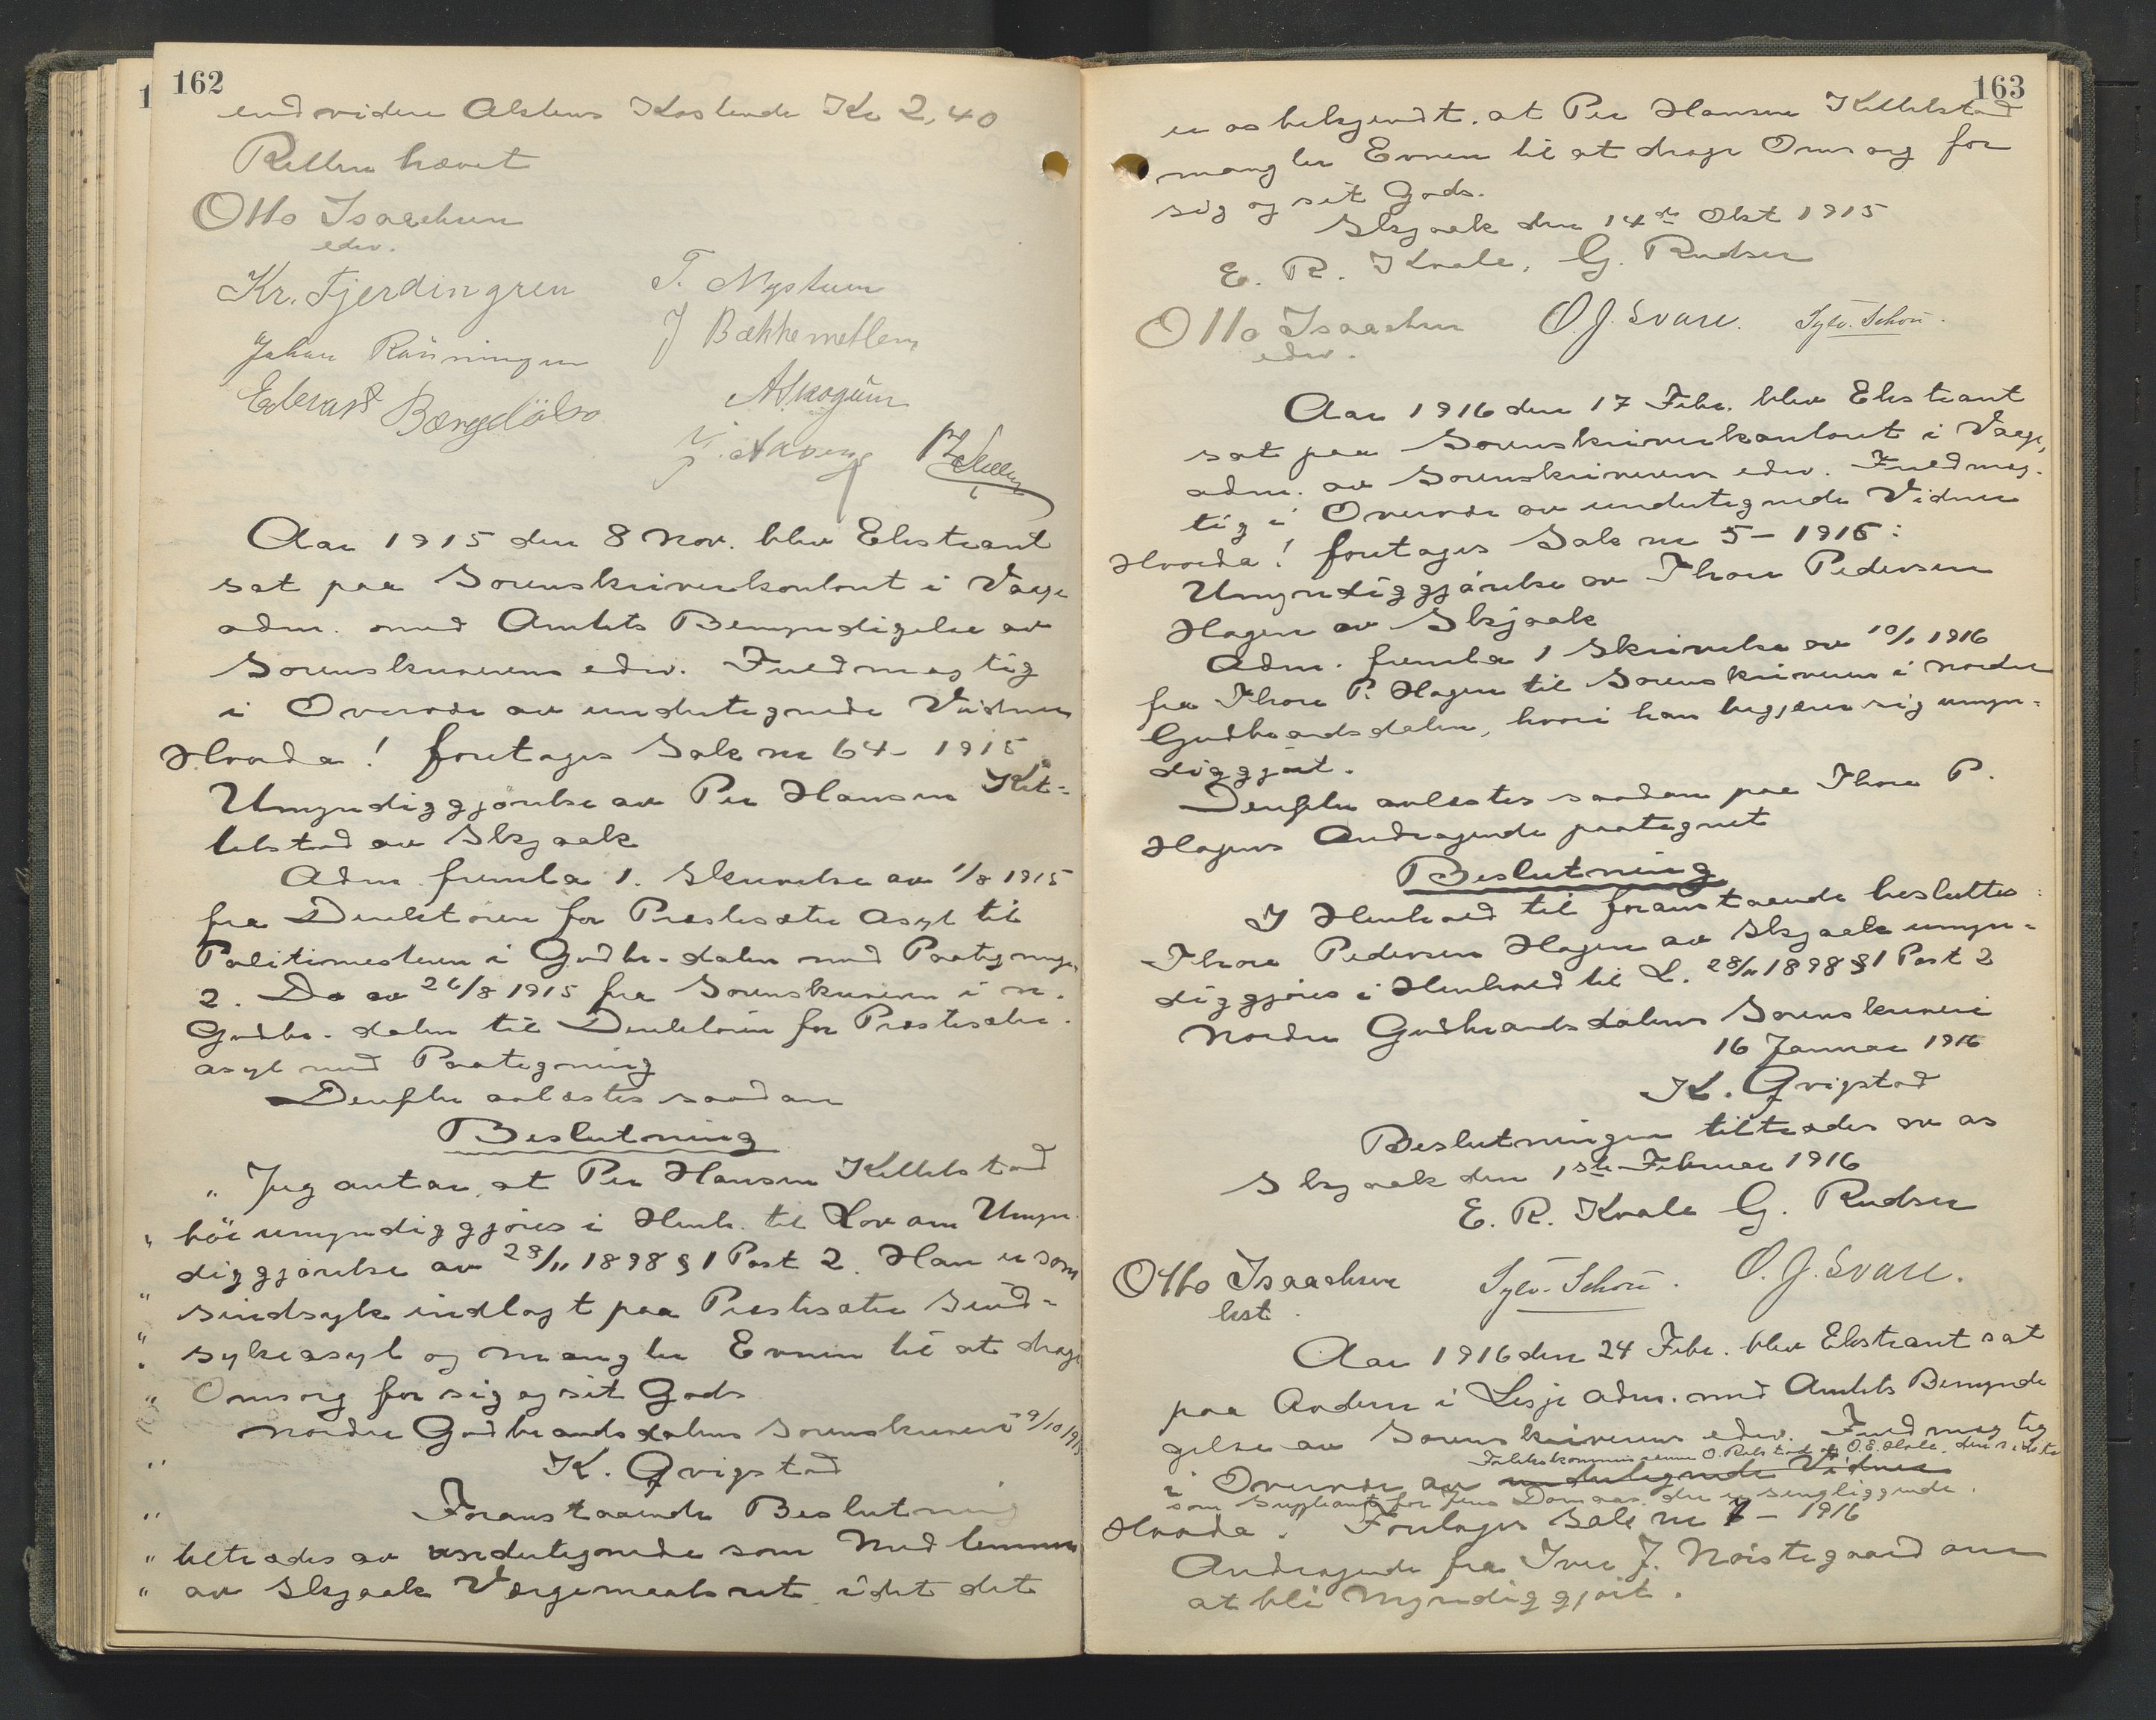 162
endvidere Aktens Kostende Kr 2,40
Retten hævet
Otto Isaachsen
edsv.
Kr. Fjerdingren T. Nystuen
Johan Rønningen J Bækkemellem
Edvard Bergdølmo A Skogum
J. Aaveng
Aar 1915 den 8 Nov. blev Ekstraret
sat paa Sorenskriverkontoret i Vaage
adm. med Amtets Bemyndigelse av
Sorenskriverens edsv. Fuldmægtig
i Overvær av undertegnede Vidner
Hvorda! foretages Sak nr 64 - 1915
Umyndiggjørelse av Per Hansen Ket-
telstad av Skjaak
Adm. fremla 1. Skrivelse av 1/8 1915
fra Direktøren for Præstesæter Asyl til
Politimesteren i Gudbr.dalen med Paategning,
2. Do av 26/8 1915 fra Sorenskriveren i n.
Gudbr.dalen til Direktøren for Præstesæter
asyl med Paategning
Derefter avlæstes saadan
Beslutning
" Jeg antar, at Per Hansen Kettelstad
" bør umyndiggjøres i Henh. til Lov om Umyn-
diggjørelse av 28/11 1898 § 1 Post 2. Han er som
" sindsyk indlagt paa Præstesæter Sind-
" sykeasyl og mangler Evnen til at drage
" Omsorg for sig og sit Gods
Nordre Gudbrandsdalens Sorenskriveri 9/10 1915
" K. Qvigstad
" Foranstaaende Beslutning
" tiltrædes av undertegnede som Medlemmer
" av Skjaak Værgemaalsret idet det
163
er os bekjendt, at Per Hansen Kettelstad
mangler Evnen til at drage Omsorg for
sig og sit Gods.
Skjaak den 14de Okt 1915
E. R. Kvale, G. Rudser
Otto Isaachsen O. J. Svare. Sylv. Schou.
edsv.
Aar 1916 den 17 Febr. blev Ekstraret
sat paa Sorenskriverkontoret i Vaage,
adm. av Sorenskriverens edsv. Fuldmæg-
tig i Overvær av undertegnede Vidner
Hvorda! foretages Sak nr 5 - 1916:
Umyndiggjørelse av Thore Pedersen
Hagen av Skjaak
Adm. fremla 1 Skrivelse av 10/1 1916
fra Thore P. Hagen til Sorenskriveren i nordre
Gudbrandsdalen, hvori han begjærer sig umyn-
diggjort.
Derefter avlæstes saadan paa Thore P.
Hagens Andragende paategnet
Beslutning
I Henhold til foranstaaende besluttes:
Thore Pedersen Hagen av Skjaak umyn-
diggjøres i Henhold til L. 28/11 1898 § 1 Post 2
Nordre Gudbrandsdalens Sorenskriveri
16 Januar 1916
K. Qvigstad
Beslutningen tiltrædes av os
Skjaak den 1ste Februar 1916
E. R. Kvale G. Rudser
Otto Isaachsen Sylv. Schou. O. J. Svare.
best.
Aar 1916 den 24 Febr. blev Ekstraret sat
paa Avdem i Lesje adm. med Amtets Bemyndi
gelse av Sorenskriverens edsv. Fuldmægtig
i Overvær av undertegnede Vidner
som Supleant for Jens Domaas der er sengliggende.
Hvorda. Foretages Sak nr 7 - 1916
Andragende fra Iver J. Nørstegaard om
at bli myndiggjort.